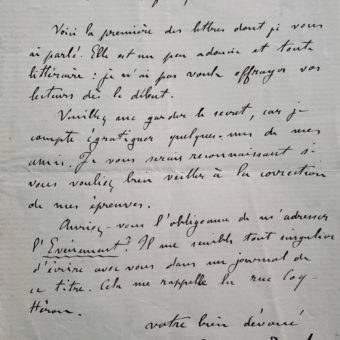 Voici la première des lettres dont je vous
ai parlé. Elle est un peu adoucie et toute
littéraire : je n'ai pas voulu effrayer vos
lecteurs dès le début.
Veuillez me garder le secret, car je
compte égratigner quelques-uns de mes
amis. Je vous serais reconnaissant si
vous vouliez bien veiller à la correction
de mes épreuves.
Auriez-vous l'obligeance de m'adresser
l'Evénement? Il me semble tout singulier
d'écrire avec vous dans un journal de
ce titre. Cela me rappelle la rue Coq-
Héron.
votre bien dévoué